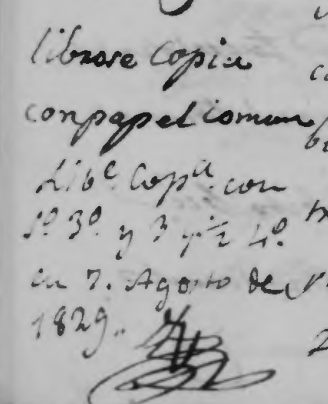 librose copia
con papel comun
Libe. Copa. con
so. 3o. y 3 4o.
en 7. Agosto de
1829.